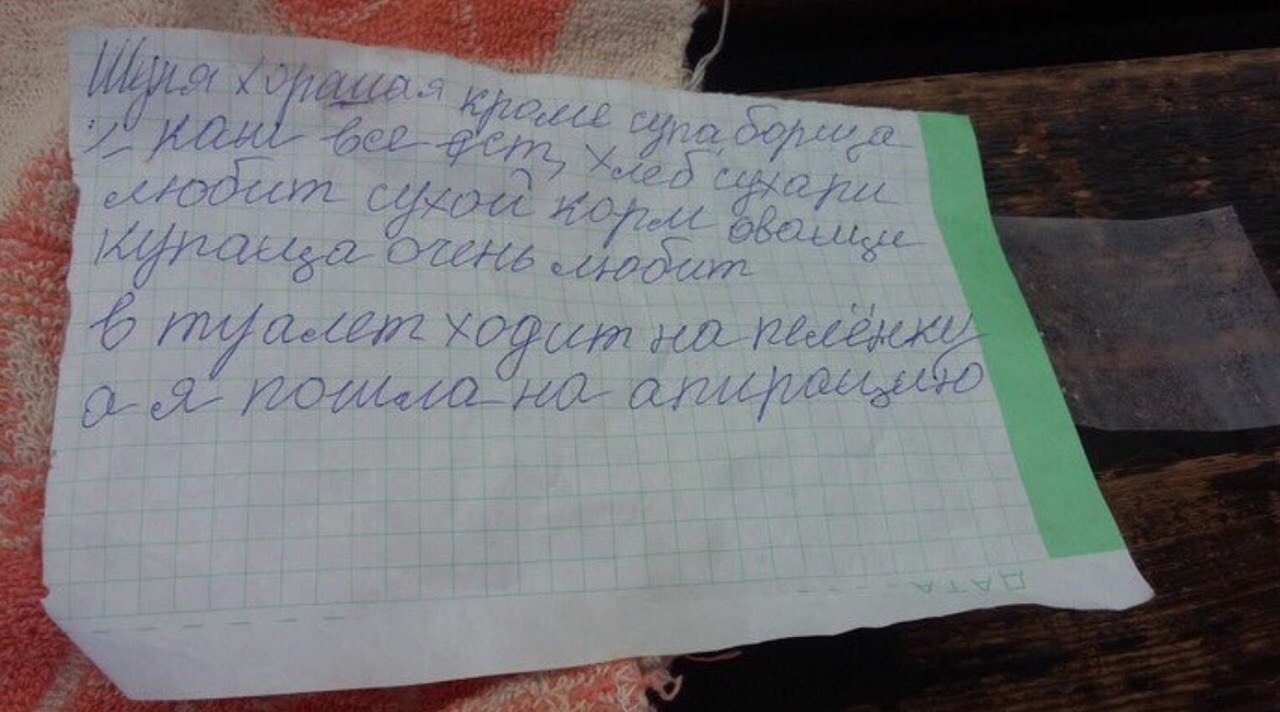 Шуня хорашая кроме супа, борща
и каш все ест, хлеб сухари
любит сухой корм оващи
купаца очень любит
в туалет ходит на пелёнку
а я пошла на апирацию
ДАТА